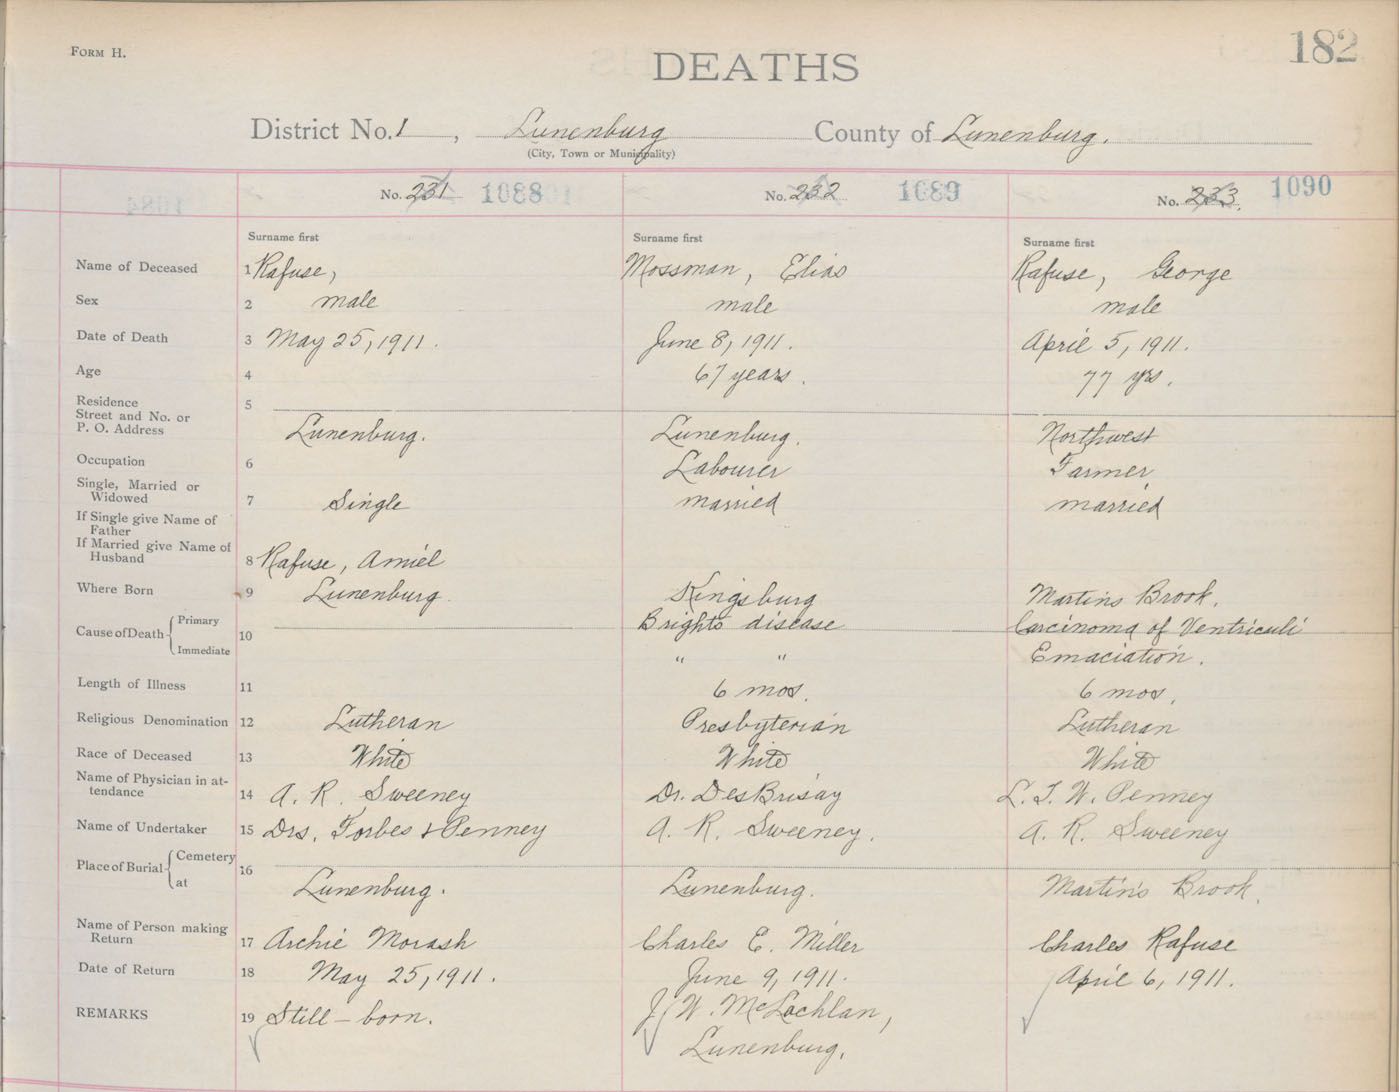 FORM H.
182
DEATHS
District No. 1, Lunenburg County of Lunenburg.
(City, Town or Municipality)
No. 231 1088 No. 232 1089 No. 233. 1090
Surname first Surname first Surname first
Name of Deceased 1 Rafuse, Mossman, Elias Rafuse, George
Sex 2 male male male
Date of Death 3 May 25, 1911. June 8, 1911. April 5, 1911.
Age 4 67 years. 77 yrs.
Residence 5
Street and No. or
P. O. Address Lunenburg. Lunenburg. Northwest
Occupation 6 Labourer Farmer
Single, Married or
Widowed 7 Single married married
If Single give Name of
Father
If Married give Name of
Husband 8 Rafuse, Amiel
Where Born 9 Lunenburg. Kingsburg Martins Brook.
Cause of Death Primary 10 Brights disease Carcinoma of Ventriculi
Immediate " " Emaciation.
Length of Illness 11 6 mos. 6 mos.
Religious Denomination 12 Lutheran Presbyterian Lutheran
Race of Deceased 13 White White White
Name of Physician in at-
tendance 14 A. R. Sweeney Dr. DesBrisay L. T. W. Penney
Name of Undertaker 15 Drs. Forbes & Penney A. R. Sweeney. A. R. Sweeney
Place of Burial Cemetery 16
at Lunenburg. Lunenburg. Martin's Brook.
Name of Person making
Return 17 Archie Morash Charles E. Miller Charles Rafuse
Date of Return 18 May 25, 1911. June 9, 1911. April 6, 1911.
REMARKS 19 Still-born. J. W. McLachlan,
Lunenburg.